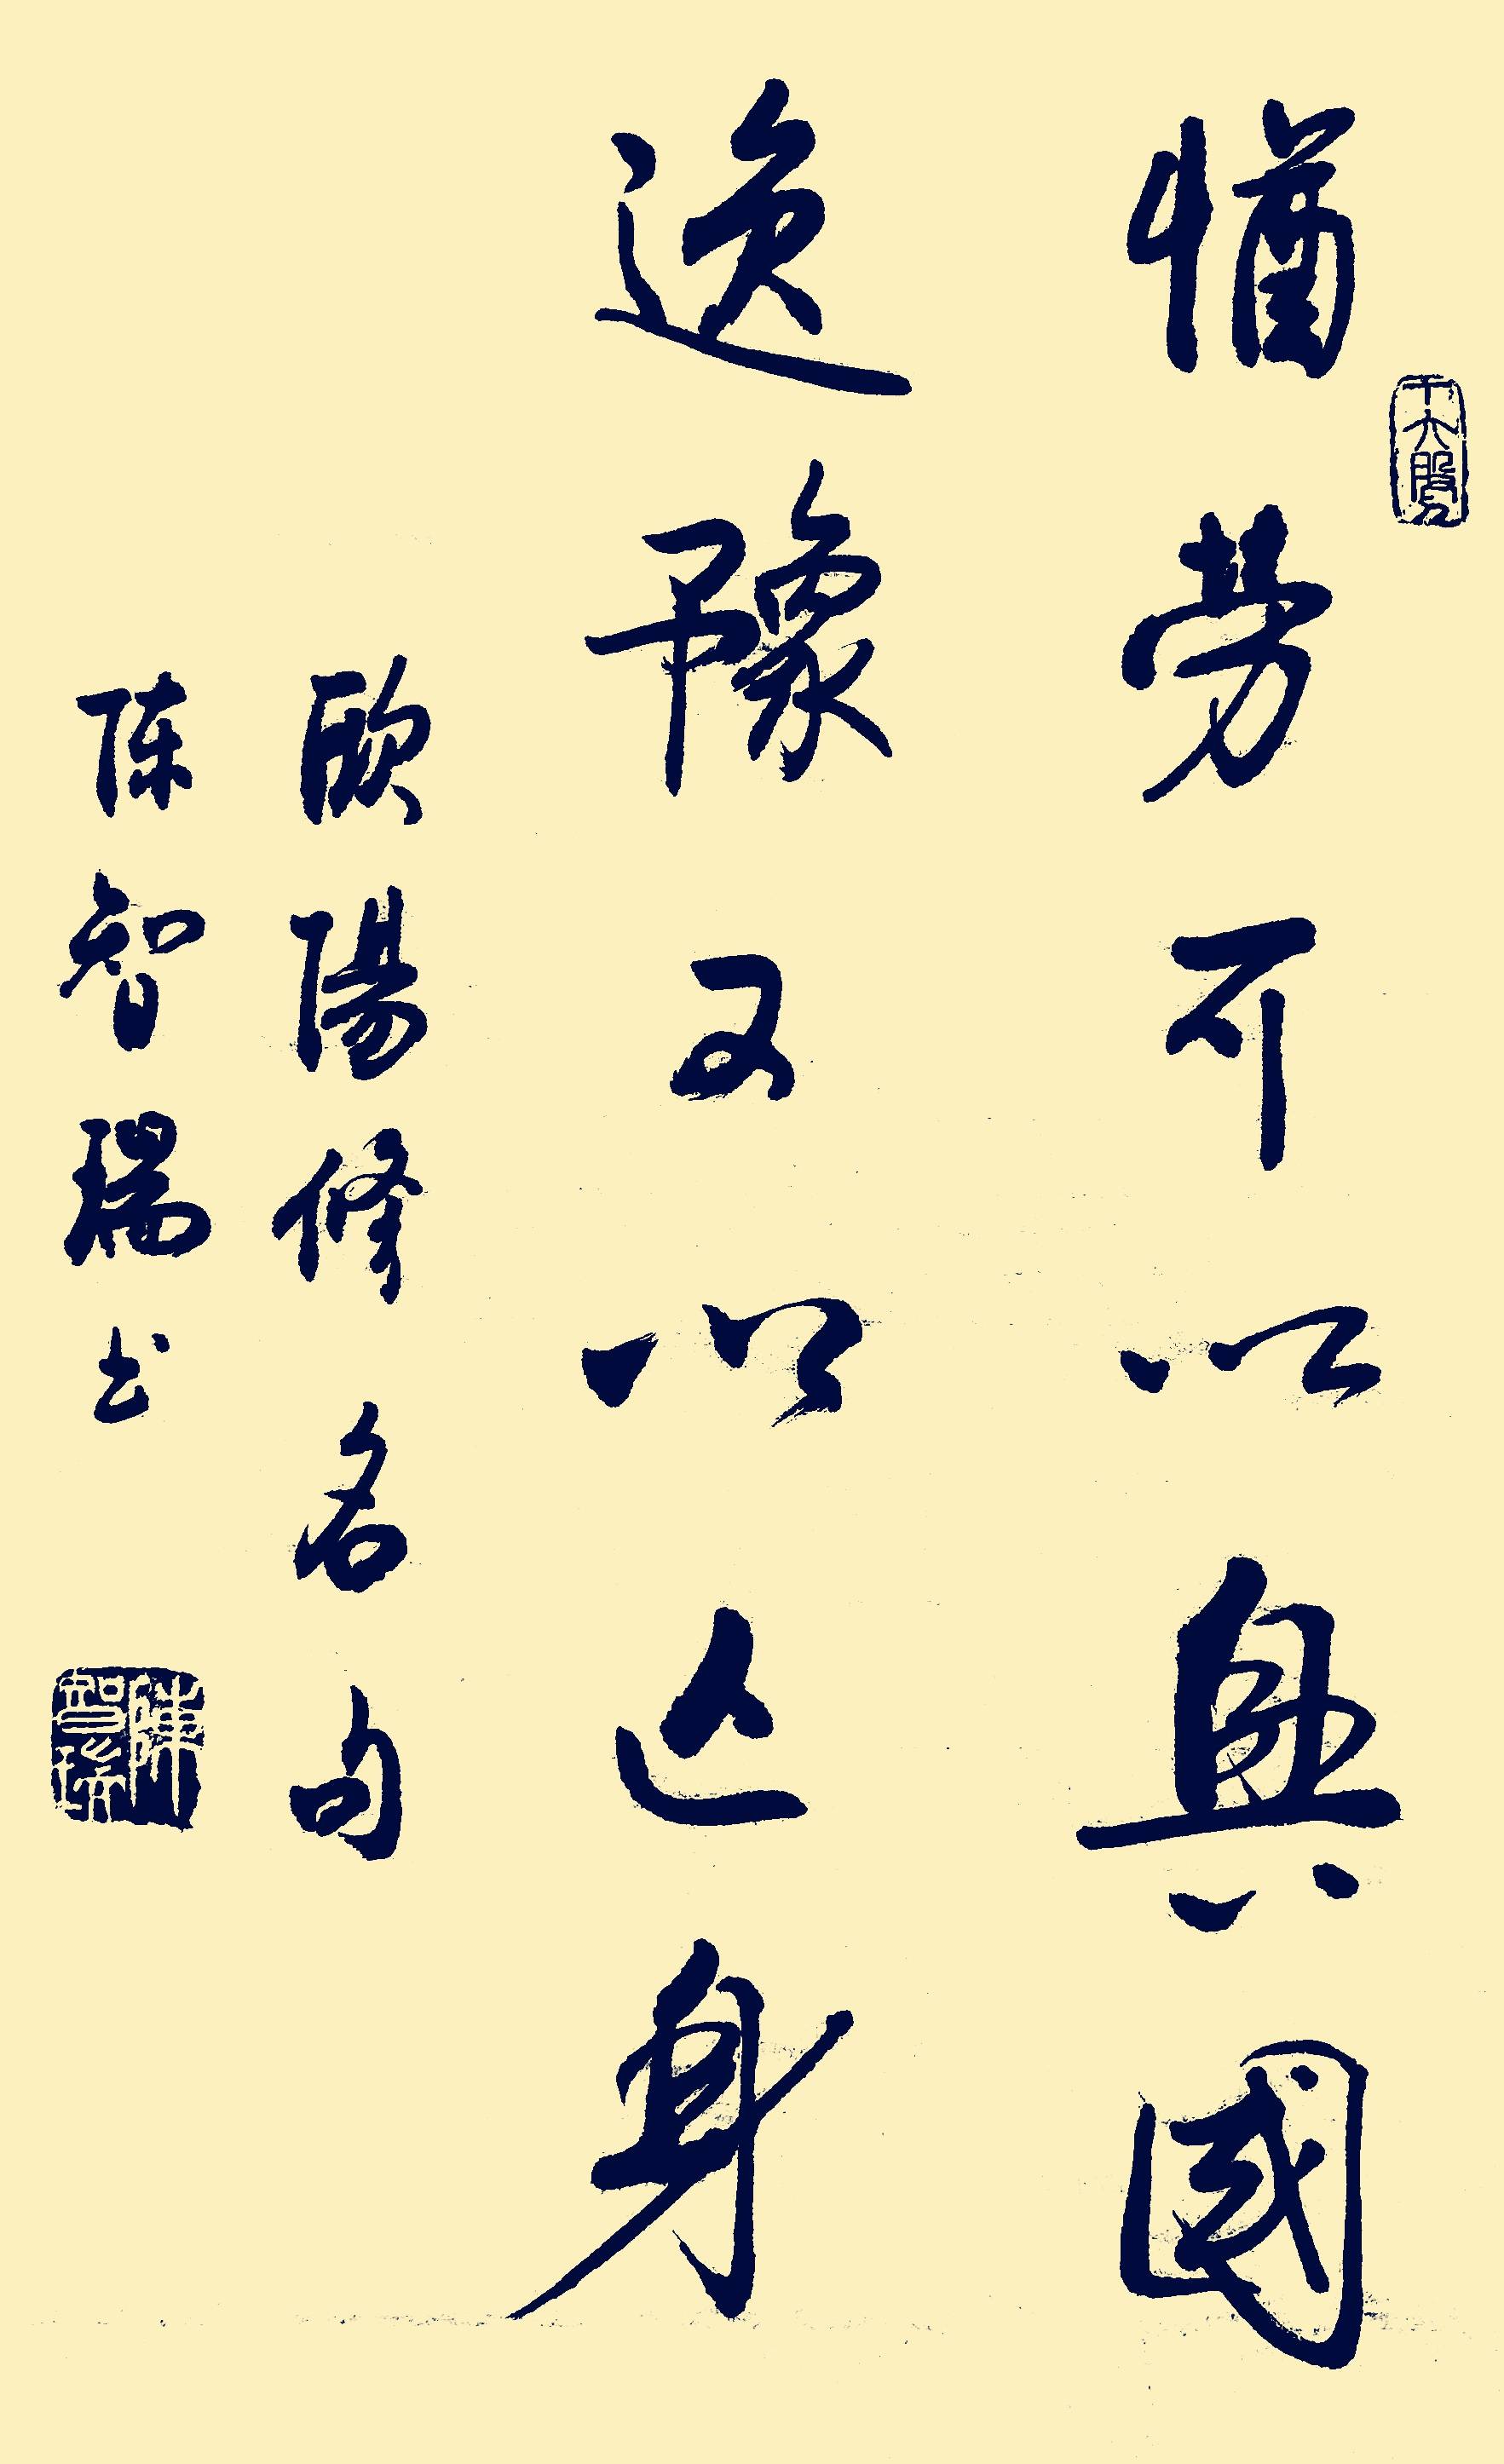 勞可以興國
逸豫可以亡身
歐陽修名句
陈智瑞书
陳智瑞